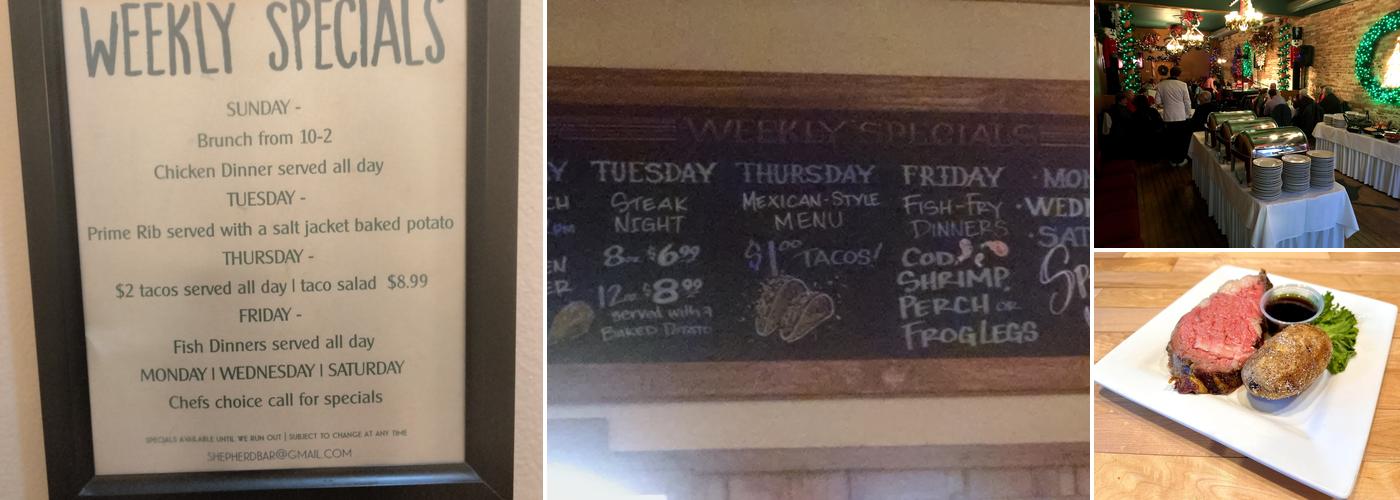 WEEKLY SPECIALS
SUNDAY -
Brunch from 10-2
Chicken Dinner served all day
TUESDAY -
Prime Rib served with a salt jacket baked potato
THURSDAY -
$2 tacos served all day | taco salad $8.99
FRIDAY -
Fish Dinners served all day
MONDAY | WEDNESDAY | SATURDAY
Chefs choice call for specials
SPECIALS AVAILABLE UNTIL WE RUN OUT | SUBJECT TO CHANGE AT ANY TIME
SHEPHERDBAR@GMAIL.COM
WEEKLY SPECIALS
Y
CH
PM
EN
ER
TUESDAY
STEAK
NIGHT
8oz $6.99
12oz $8.99
served with a
BAKED POTATO
THURSDAY
MEXICAN-STYLE
MENU
$1.00 TACOS!
FRIDAY
FISH-FRY
DINNERS
COD,
SHRIMP,
PERCH OR
FROG LEGS
·MON
·WED
·SAT
SP